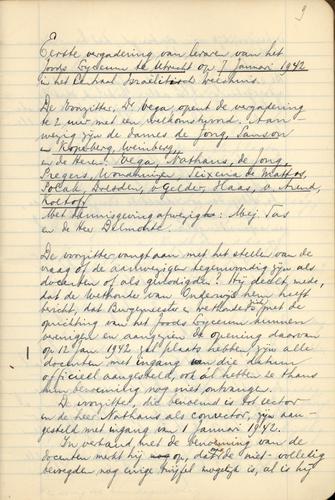 9
Eerste vergadering van leraren van het
Joods Lyceum te Utrecht op 7 Januari 1942
in het Centraal Israëlitisch Weeshuis.
De Voorzitter, Dr Vega, opent de vergadering
te 2 uur met een welkomstwoord. Aan-
wezig zijn de dames de Jong, Samson
en Kropsberg, Weinberg,
en de Heren: Vega, Nathans, de Jong,
Pregers, Wondhuijzen, Teixeira de Mattos,
Polak, Dresden, v Gelder, Haas, v. Arend,
Roeloff
Met kennisgeving afwezig: Mej. Tas
en de Heer Delmonte.
De voorzitter vangt aan met het stellen van de
vraag of de aanwezigen tegenwoordig zijn als
docenten of als genodigden? Hij deelt mede,
dat de wethouder van Onderwijs hem heeft
bericht, dat Burgemeester en wethouders zich met de
oprichting van het Joods Lyceum kunnen
verenigen en aangezien de opening daarvan
op 12 Jan 1942 zal plaats hebben, zijn alle
docenten met ingang van die datum
officieel aangesteld, ook al hebben ze thans
hun benoeming nog niet ontvangen.
D. voorzitter, die benoemd is tot rector
en de heer Nathans als conrector, zijn aan-
gesteld met ingang van 1 Januari 1942.
In verband met de benoeming van de
docenten merkt hij op, dat of de niet-volledig
bevoegden nog enige twijfel mogelijk is, al is hij